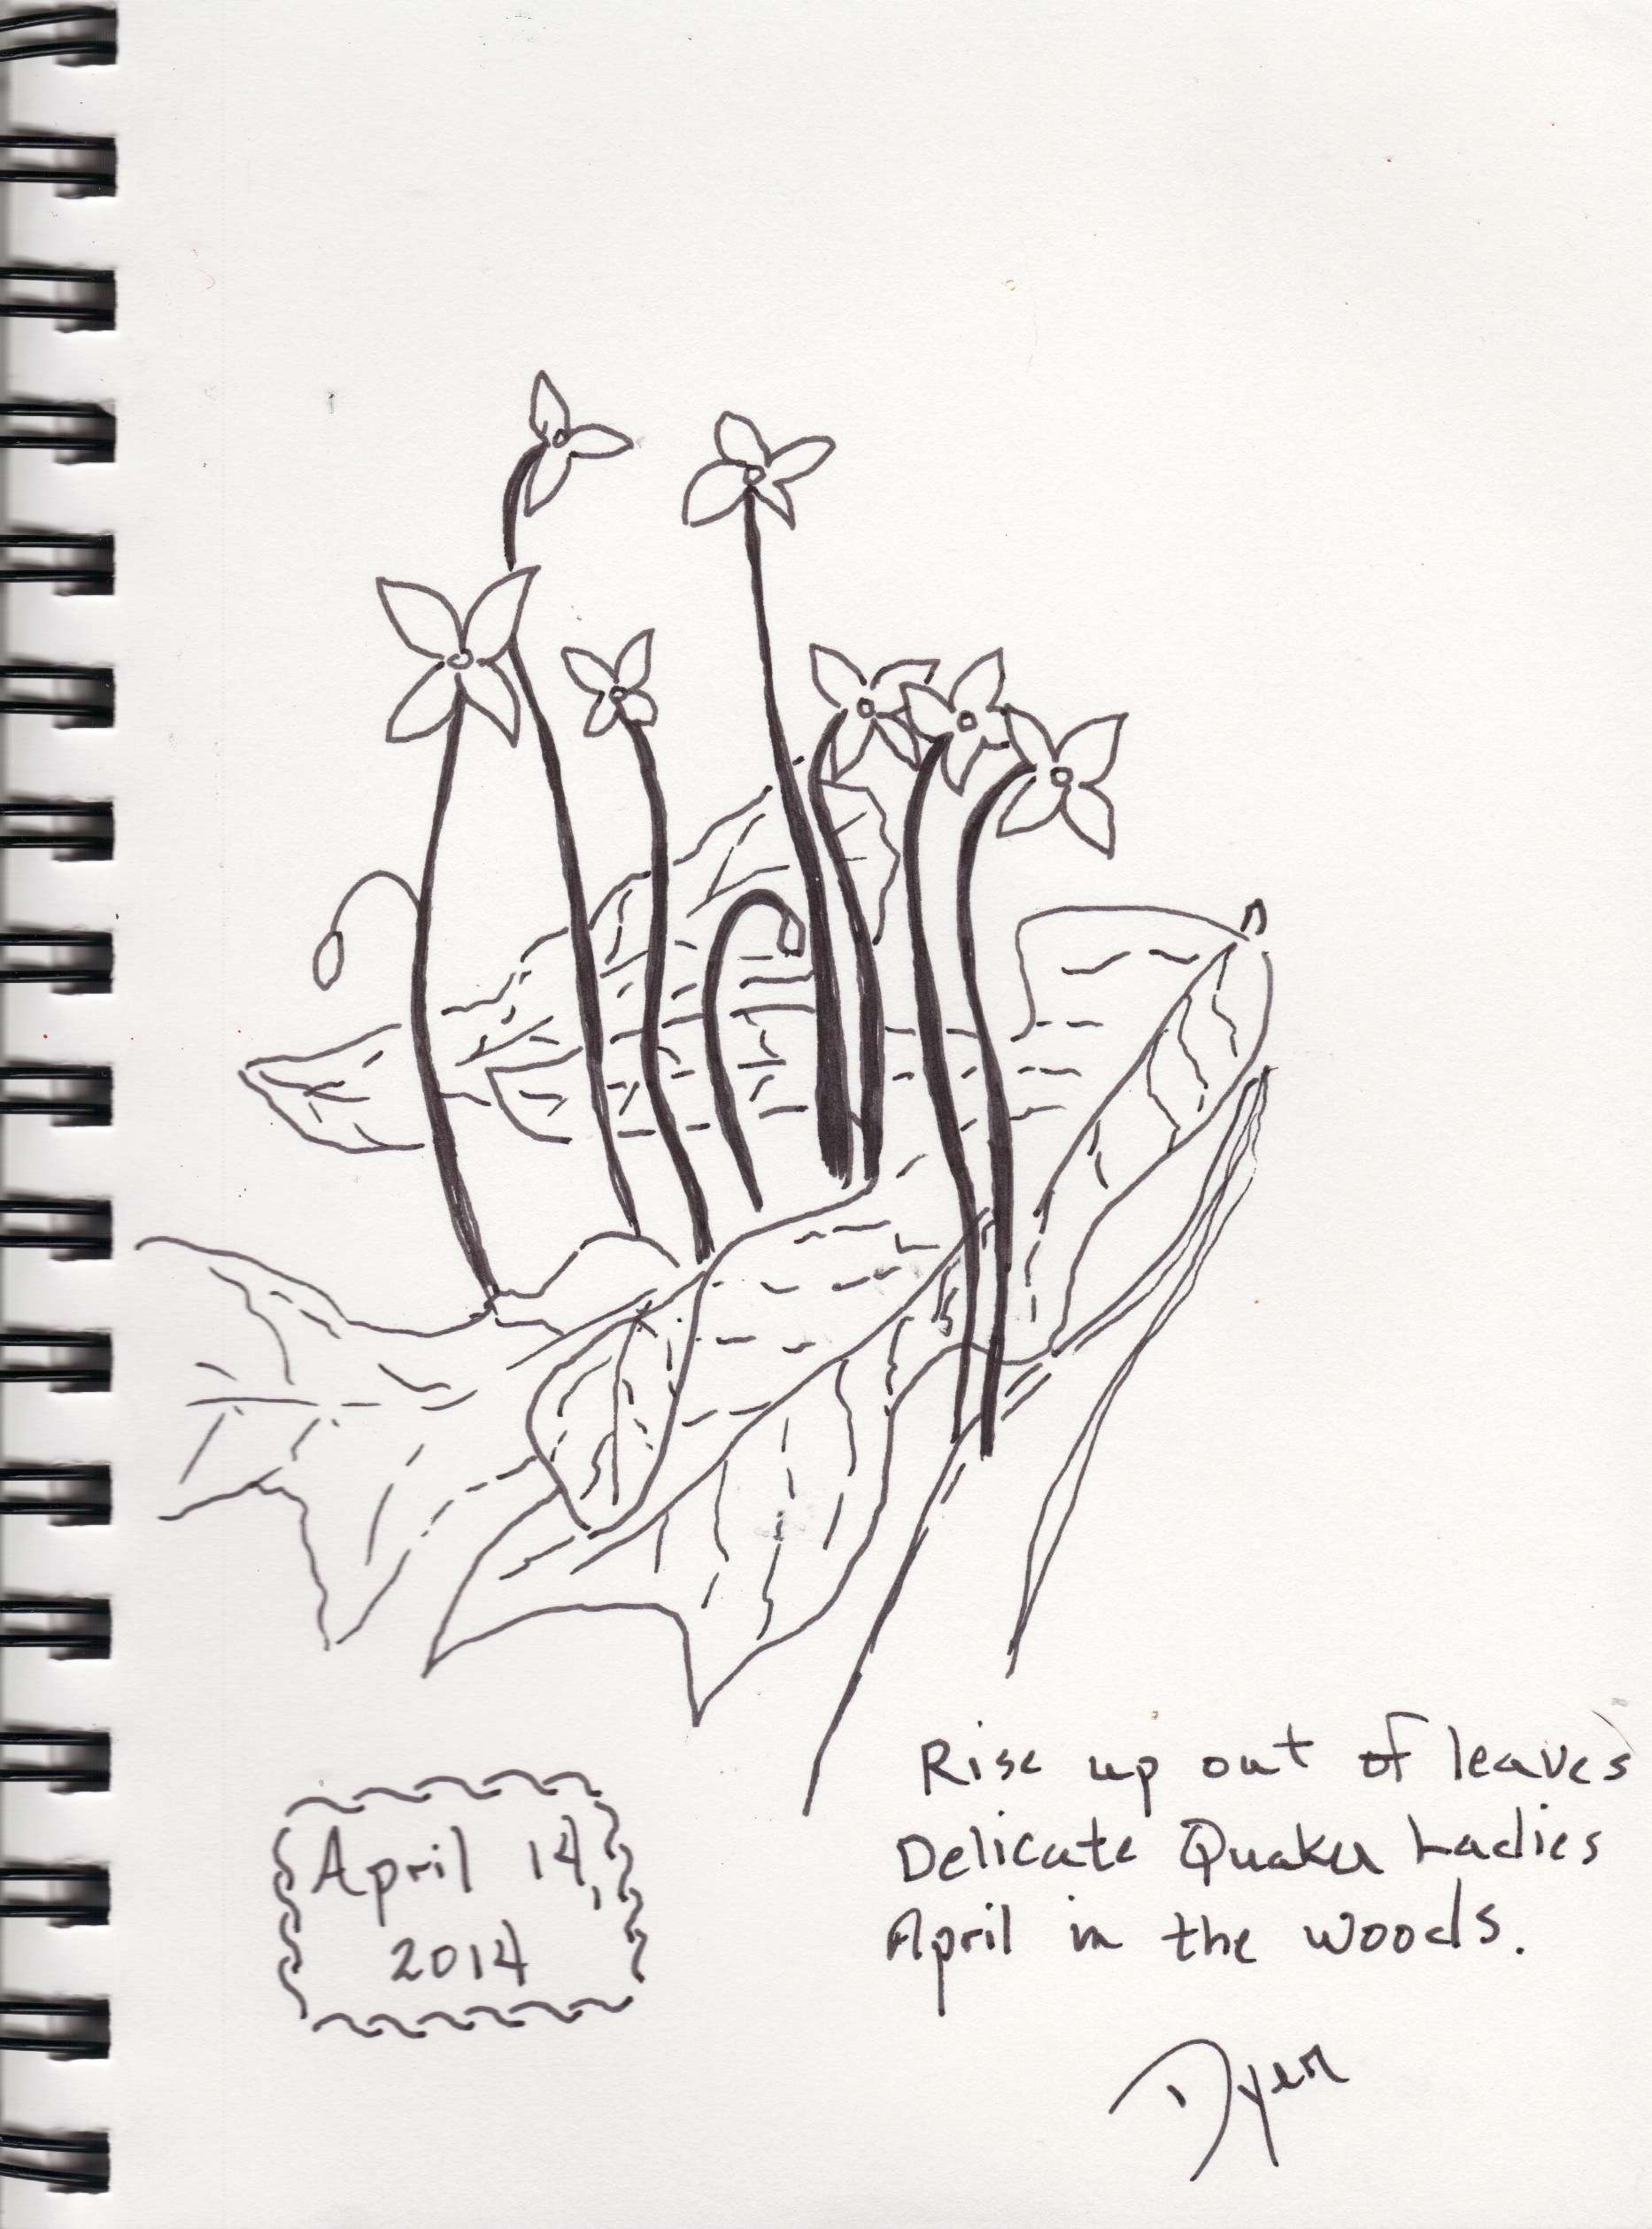 Rise up out of leaves
Delicate Quaker Ladies
April in the woods.
April 14,
2014
Dyer